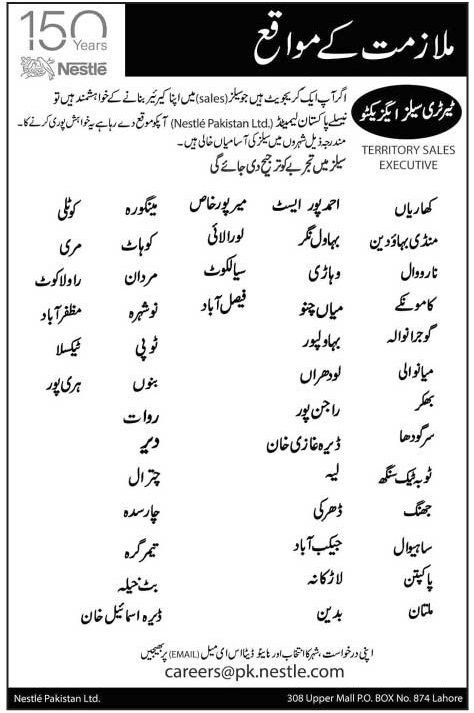 150
Years
Nestlé
ملازمت کے مواقع
ٹیرٹری سیلز ایگزیکٹو
TERRITORY SALES
EXECUTIVE
اگر آپ ایک گریجویٹ ہیں جو سیلز (sales) میں اپنا کیرئیر بنانے کے خواہشمند ہیں تو
نیسلے پاکستان لیمیٹڈ (Nestlé Pakistan Ltd.) آپکو موقع دے رہا ہے یہ خواہش پوری کرنے کا۔
مندرجہ ذیل شہروں میں سیلز کی آسامیاں خالی ہیں۔
سیلز میں تجربے کو ترجیح دی جائے گی
کھاریاں
منڈی بہاؤدین
نارووال
کامونکے
گوجرانوالہ
میانوالی
بھکر
سرگودھا
ٹوبہ ٹیک سنگھ
جھنگ
ساہیوال
پاکپتن
ملتان
احمد پور ایسٹ
بہاول نگر
وہاڑی
میاں چنو
بہاولپور
لودھراں
راجن پور
ڈیرہ غازی خان
لیہ
ڈھرکی
جیکب آباد
لاڑکانہ
بدین
میرپور خاص
لورالائی
سیالکوٹ
فیصل آباد
مینگورہ
کوہاٹ
مردان
نوشہرہ
ٹوپی
بنوں
روات
دیر
چترال
چارسدہ
تیمرگرہ
بٹ خیلہ
ڈیرہ اسمائیل خان
کوٹلی
مری
راولاکوٹ
مظفر آباد
ٹیکسلا
ہری پور
اپنی درخواست، شہر کا انتخاب اور بائیو ڈیٹا اس ای میل (EMAIL) پر بھیجیں
careers@pk.nestle.com
Nestlé Pakistan Ltd.
308 Upper Mall P.O. BOX No. 874 Lahore